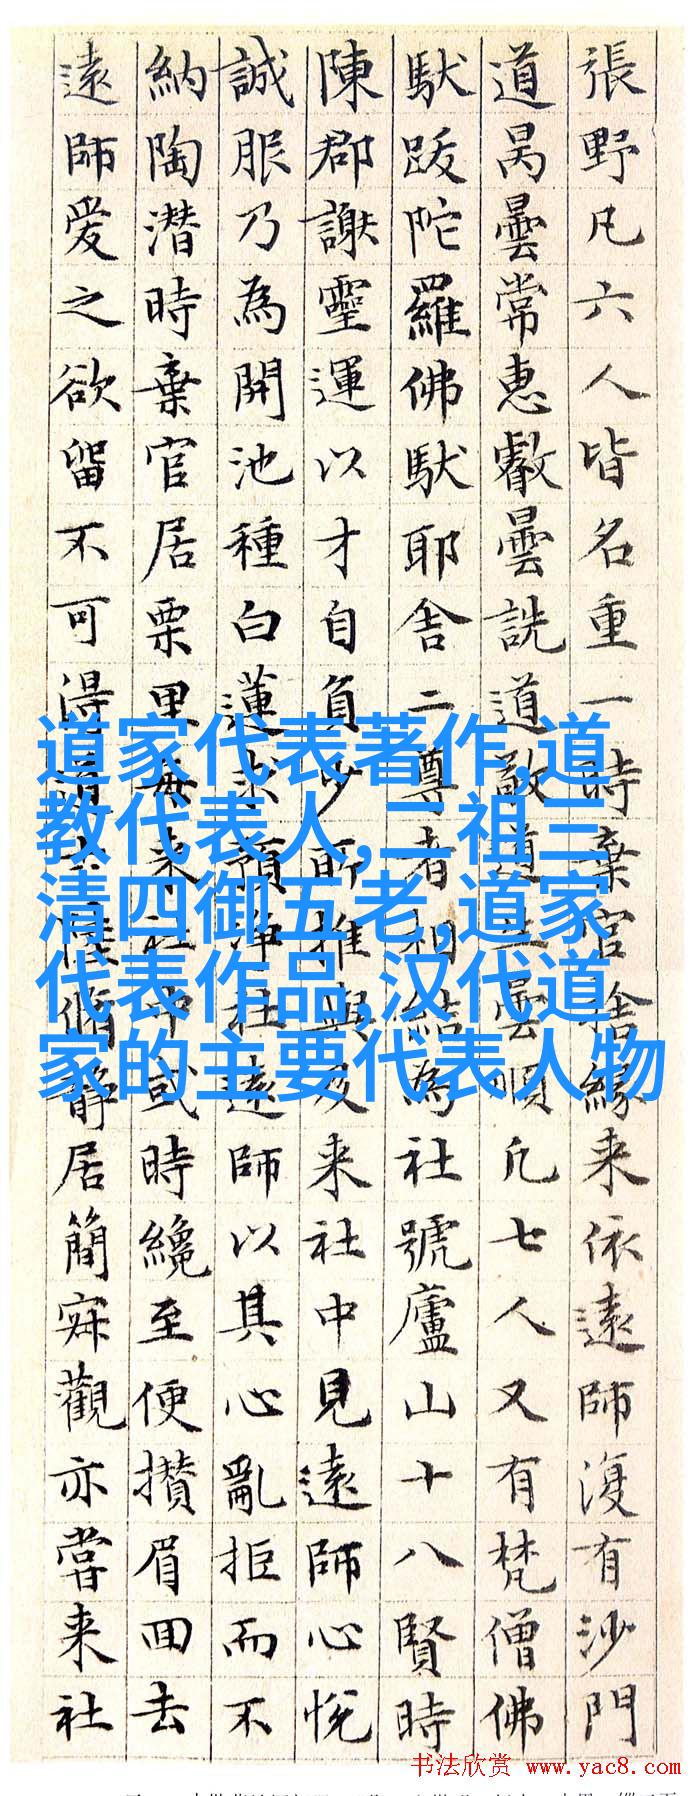 張野凡六人皆名重一時棄官捨緣来依遠師復有沙門
道昺曇常惠叡曇詵道敬道生曇順凡七人又有梵僧佛
馱跋陀羅佛馱耶舍二尊者相結為社號廬山十八賢時
陳郡謝靈運以才自負少所推與及来社中見遠師心悅
誠服乃為開池種白蓮求預淨社遠師以其心亂拒而不
納陶潛時棄官居栗里每来社中或時纔至便攢眉回去
遠師愛之欲留不可得道士陸脩靜居簡寂觀亦嘗来社
道家代表著作,道
教代表人,二祖三
清四御五老,道家
代表作品,汉代道
家的主要代表人物
书法欣赏 www.yac8.com